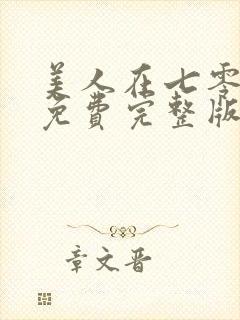 美人在七零
免费完整版
章文晋